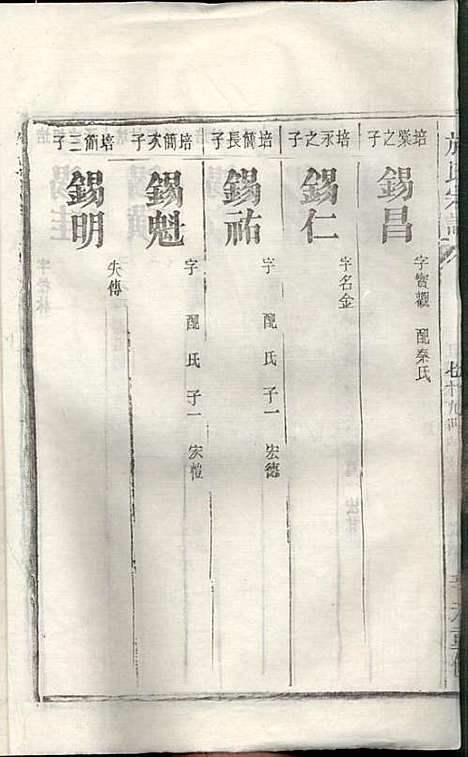 培棠之子
錫昌
字寶觀 配秦氏
培永之子
錫仁
字名金
培簡長子
錫祐
字 配 氏 子一 宏德
培簡次子
錫魁
字 配 氏 子一 宏愷
培簡三子
錫明
失傳
氏宗譜